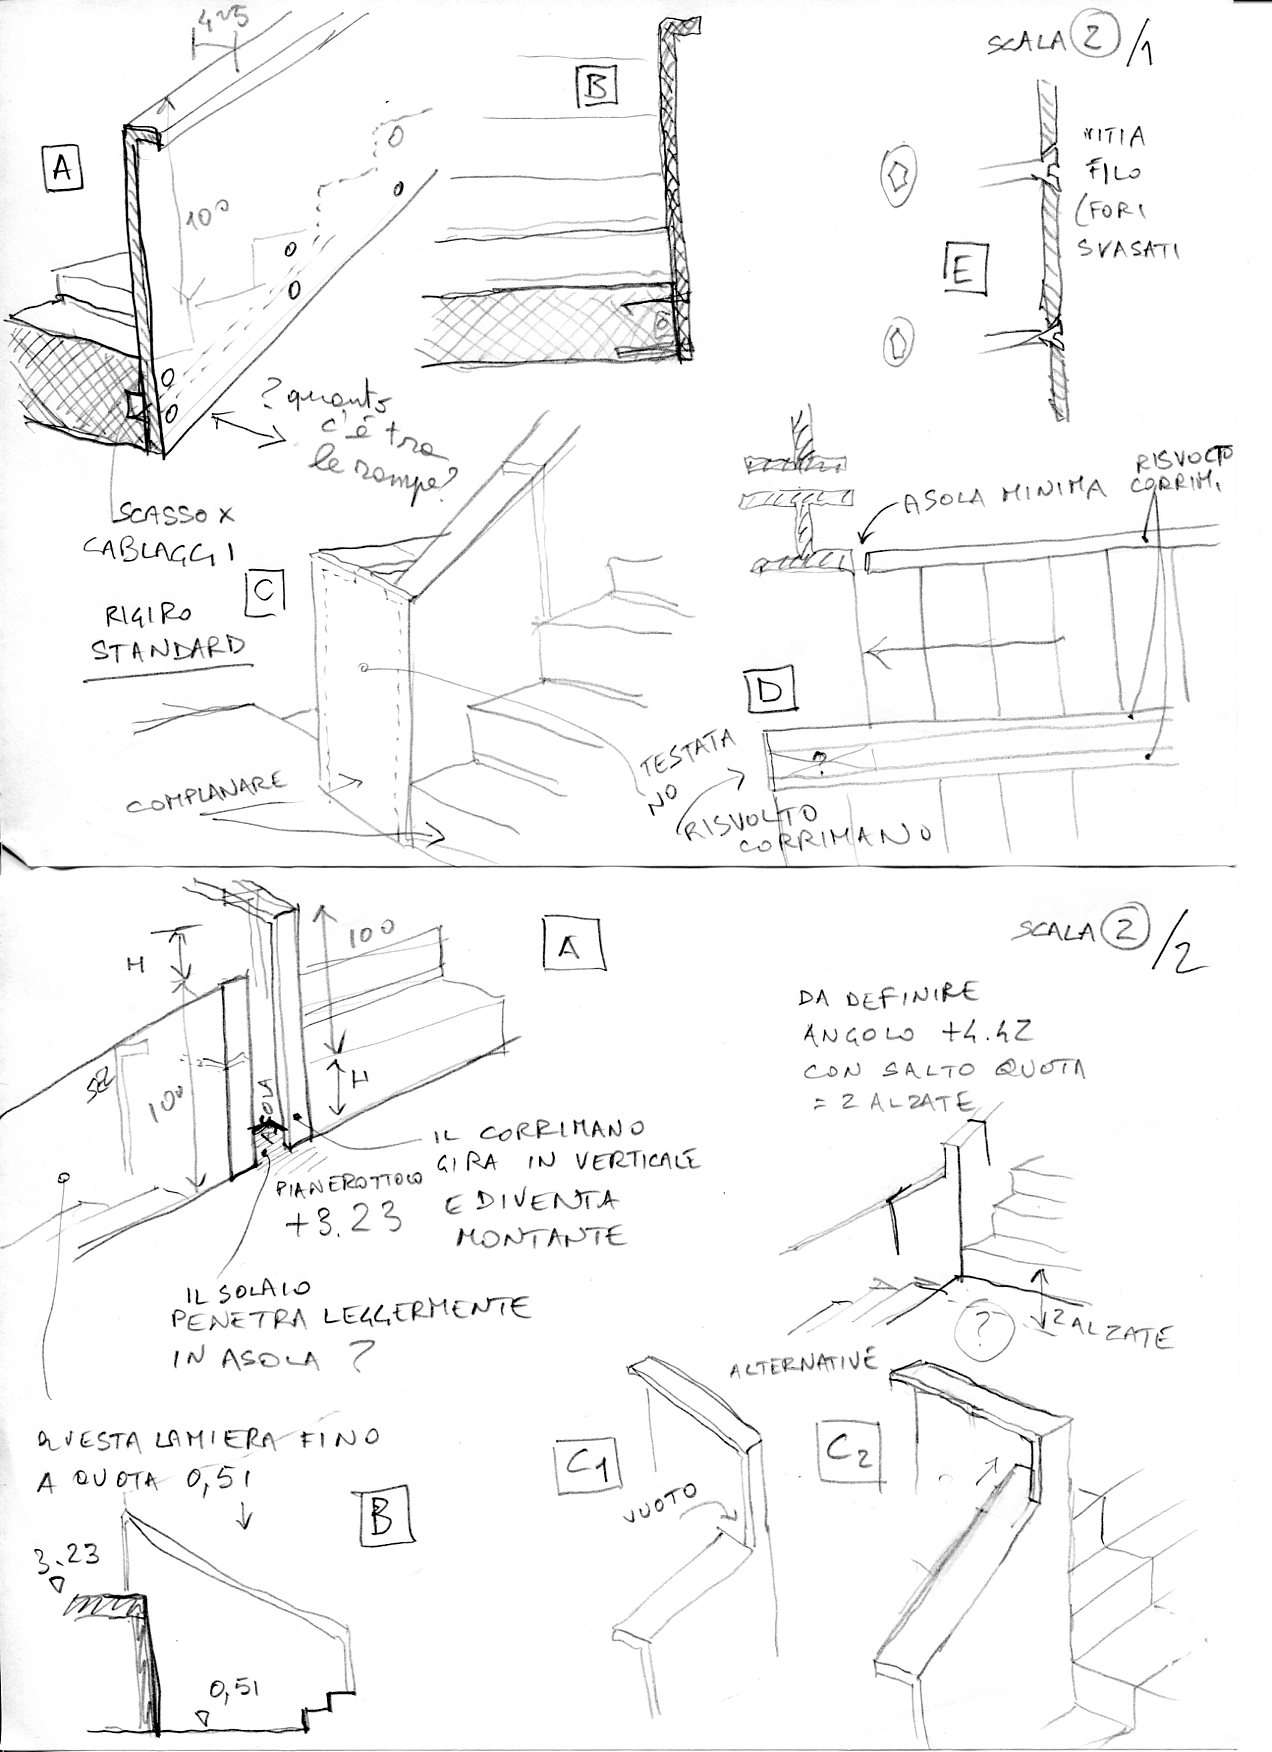 4÷5
A
100
B
SCALA 2/1
VITI A
FILO
(FORI
SVASATI
E
? quanto
c'è tra
le rampe?
SCASSO X
CABLAGGI
C
RIGIRO
STANDARD
COMPLANARE
RISVOLTO
CORRIM.
ASOLA MINIMA
D
?
TESTATA
NO
RISVOLTO
CORRIMANO
A
SCALA 2/2
H
100
SEZ
100
ASOLA
H
DA DEFINIRE
ANGOLO +4.42
CON SALTO QUOTA
= 2 ALZATE
IL CORRIMANO
GIRA IN VERTICALE
E DIVENTA
MONTANTE
PIANEROTTOLO
+3.23
IL SOLAIO
PENETRA LEGGERMENTE
IN ASOLA ?
?
2 ALZATE
ALTERNATIVE
QUESTA LAMIERA FINO
A QUOTA 0,51
B
C1
VUOTO
C2
3.23
0,51